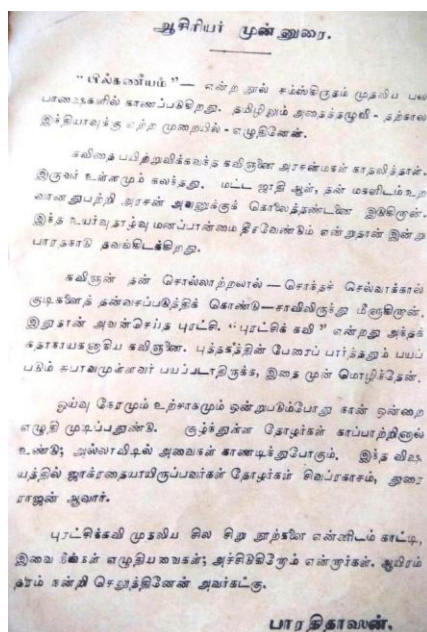 ஆசிரியர் முன்னுரை.
“பில்கணீயம்”— என்ற நூல் சம்ஸ்கிருதம் முதலிய பல
பாஷைகளில் காணப்படுகிறது. தமிழிலும் அதைத்தழுவி - தற்கால
இந்தியாவுக்கு ஏற்ற முறையில் - எழுதினேன்.
கவிதை பயிற்றுவிக்கவந்த கவிஞனை அரசன்மகள் காதலித்தாள்.
இருவர் உள்ளமும் கலந்தது. மட்ட ஜாதி ஆள், தன் மகளிடம் உற
வானதுபற்றி அரசன் அவனுக்குக் கொலைத்தண்டனை இடுகிறான்.
இந்த உயர்வுதாழ்வு மனப்பான்மை தீரவேண்டும் என்றுதான் இன்று
பாரதநாடு தவங்கிடக்கிறது.
கவிஞன் தன் சொல்லாற்றலால் — சொந்தச் செல்வாக்கால்
குடிகளைத் தன்வசப்படுத்திக் கொண்டு—சாவிலிருந்து மீளுகிறான்.
இதுதான் அவன்செய்த புரட்சி. “புரட்சிக் கவி” என்றது அந்தக்
கதாநாயகனாகிய கவிஞனை. புத்தகத்தின் பேரைப் பார்த்ததும் பயப்
படும் சுபாவமுள்ளவர் பயப்படாதிருக்க, இதை முன் மொழிந்தேன்.
ஓய்வு நேரமும் உற்சாகமும் ஒன்றுபடும்போது நான் ஒன்றை
எழுதி முடிப்பதுண்டு. சூழ்ந்துள்ள தோழர்கள் காப்பாற்றினால்
உண்டு; அல்லாவிடில் அவைகள் காணடிந்துபோகும். இந்த விஷ
யத்தில் ஜாக்ரதையாயிருப்பவர்கள் தோழர்கள் சிவப்ரகாசம், துரை
ராஜன் ஆவார்.
புரட்சிக்கவி முதலிய சில சிறு நூற்களை என்னிடம் காட்டி,
இவை நீங்கள் எழுதியவைகள்; அச்சிடுகிறோம் என்றார்கள். ஆயிரம்
தரம் நன்றி செலுத்தினேன் அவர்கட்கு.
பாரதிதாஸன்.